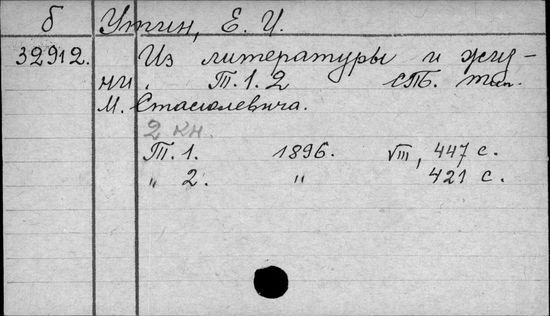 б Утин, Е. И.
32912. Из литературы и жиз-
ни. Т. 1. 2 СПб. тип.
М. Стасюлевича.
2 кн.
Т. 1. 1896. VIII, 447 с.
" 2. " 421 с.